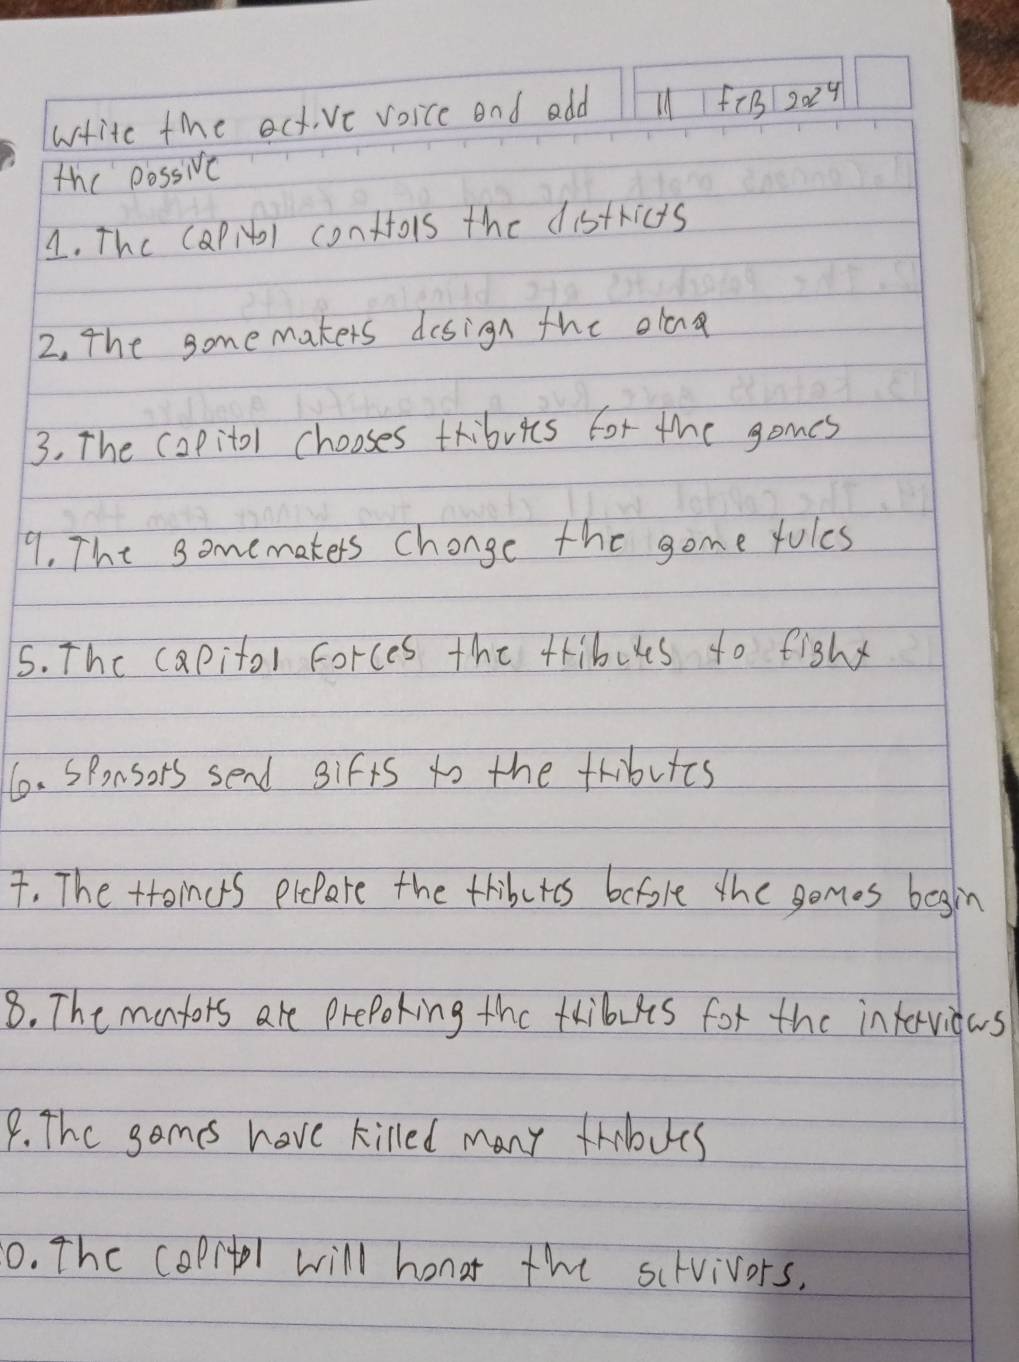 write the active voice and add
11 FEB 2024
the passive
1. The Capitol controls the districts
2. The gamemakers design the arena
3. The Capitol chooses tributes for the games
4. The gamemakers change the game rules
5. The Capitol forces the tributes to fight
6. Sponsors send gifts to the tributes
7. The trainers prepare the tributes before the games begin
8. The mentors are preparing the tributes for the interviews
9. The games have killed many tributes
10. The Capitol will honor the survivors.